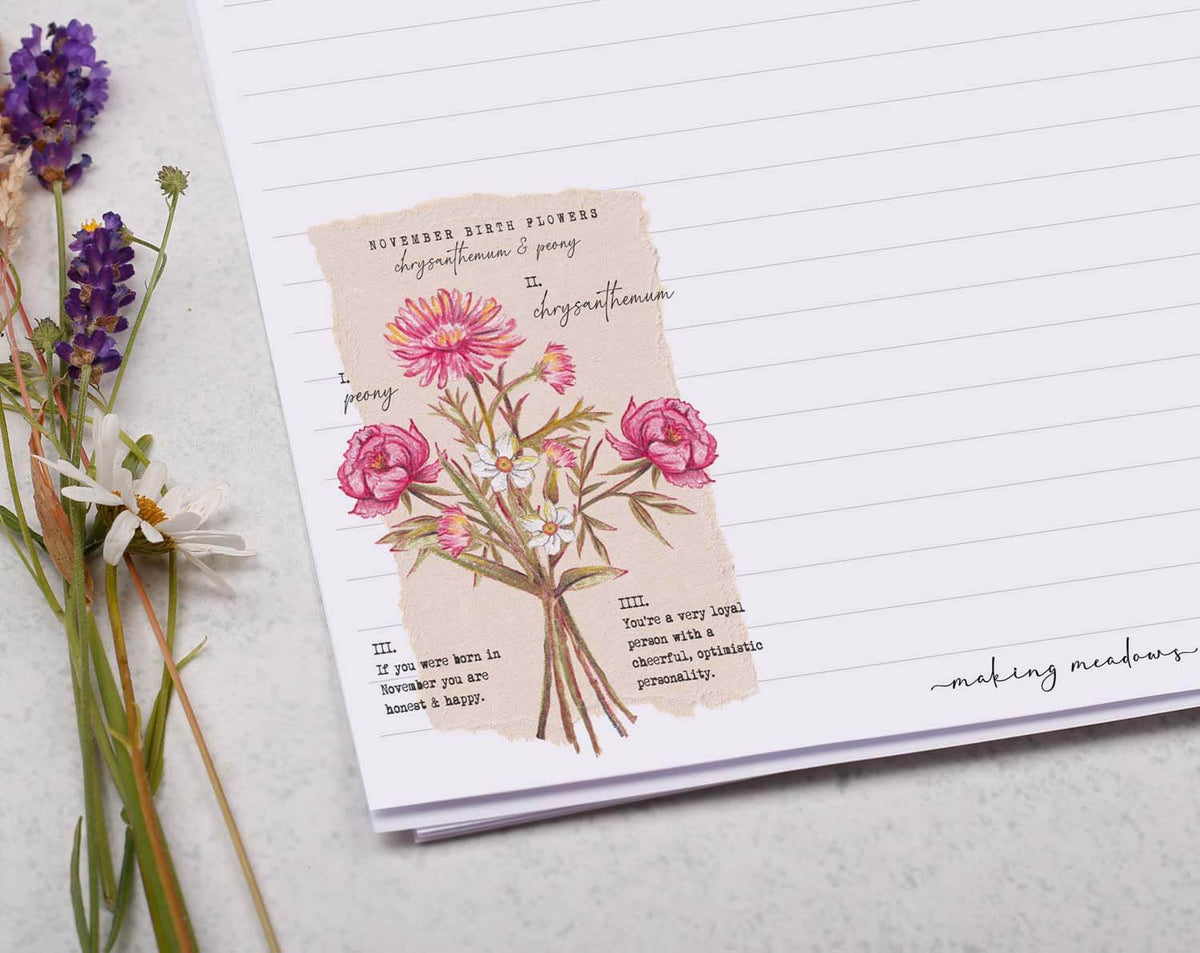 NOVEMBER BIRTH FLOWERS
chrysanthemum & peony
II.
chrysanthemum
I.
peony
III.
If you were born in
November you are
honest & happy.
IIII.
You're a very loyal
person with a
cheerful, optimistic
personality.
making meadows